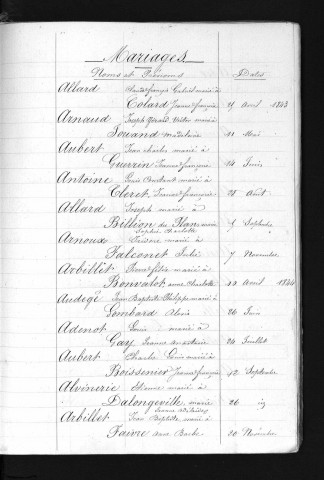 Mariages
Noms et Prénoms Dates
Allard Claude françs Gabriel marié à
Colard Jeanne françoise 19 Avril 1843
Arnaud Joseph Gérard Victor marié à
Jouand Madeleine 11 Mai
Aubert Jean Charles marié à
Guerrin Jeanne françoise 14 Juin
Antoine Louis Constant marié à
Cleret Jeanne françoise 28 Août
Allard Joseph marié à
Billion du Plan marie Sophie Charlotte 5 Septembre
Arnoux Isidore marié à
Falconet Julie 7 Novembre
Arbillet Pierre félix marié à
Bonvalot anne Charlotte 10 Avril 1844
Audegé Jean Baptiste Philippe marié à
Lombard Aloïse 26 Juin
Adenot Louis marié à
Gay Jeanne 24 Juillet
Aubert Charles Louis marié à
Boissenier Jeanne françoise 12 Septembre
Alvinerie Etienne marié à
Dalongeville marie Jeanne Adélaïde 26 id
Arbillet Jean Baptiste marié à
Faivre Anne Barbe 20 Novembre